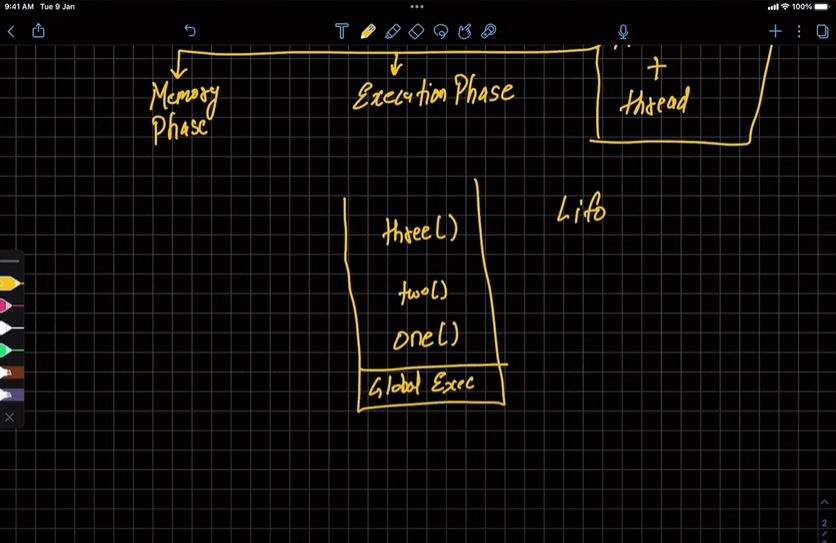 9:41 AM Tue 9 Jan
100%
T
+
thread
Memory
Phase
Execution Phase
Lifo
three()
two()
one()
Global Exec
2